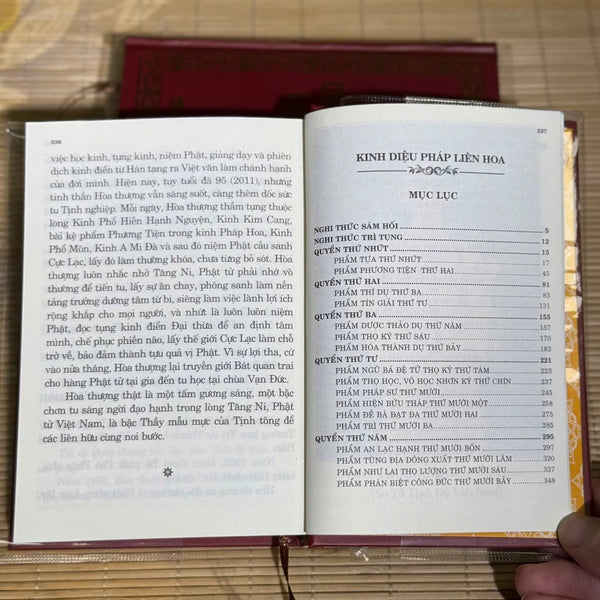 536
việc học kinh, tụng kinh, niệm Phật, giảng dạy và phiên
dịch kinh điển từ Hán tạng ra Việt văn làm chánh hạnh
của đời mình. Hiện nay, tuy tuổi đã 95 (2011), nhưng
tinh thần Hòa thượng vẫn sáng suốt, càng thêm dốc sức
tu Tịnh nghiệp. Mỗi ngày, Hòa thượng thầm tụng thuộc
lòng Kinh Phổ Hiền Hạnh Nguyện, Kinh Kim Cang,
bài kệ phẩm Phương Tiện trong kinh Pháp Hoa, Kinh
Phổ Môn, Kinh A Mi Đà và sau đó niệm Phật cầu sanh
Cực Lạc, lấy đó làm thường khóa, chưa từng bỏ sót. Hòa
thượng luôn nhắc nhở Tăng Ni, Phật tử phải nhớ vô
thường để tiến tu, lấy sự ăn chay, phóng sanh làm nền
tảng trưởng dưỡng tâm từ bi, siêng làm việc lành lợi ích
rộng khắp cho mọi người, và nhứt là luôn luôn niệm
Phật, đọc tụng kinh điển Đại thừa để an định tâm
mình, chế phục phiền não, lấy thế giới Cực Lạc làm chỗ
trở về, bảo đảm thành tựu quả vị Phật. Vì sự lợi tha, cứ
vào nửa tháng, Hòa thượng lại truyền giới Bát quan trai
cho hàng Phật tử tại gia đến tu học tại chùa Vạn Đức.
Hòa thượng thật là một tấm gương sáng, một bậc
chơn tu sáng ngời đạo hạnh trong lòng Tăng Ni, Phật
tử Việt Nam, là bậc Thầy mẫu mực của Tịnh tông để
các liên hữu cùng noi bước.
537
KINH DIỆU PHÁP LIÊN HOA
MỤC LỤC
NGHI THỨC SÁM HỐI 5
NGHI THỨC TRÌ TỤNG 12
QUYỂN THỨ NHỨT 15
PHẨM TỰA THỨ NHỨT 17
PHẨM PHƯƠNG TIỆN THỨ HAI 45
QUYỂN THỨ HAI 81
PHẨM THÍ DỤ THỨ BA 83
PHẨM TÍN GIẢI THỨ TƯ 124
QUYỂN THỨ BA 155
PHẨM DƯỢC THẢO DỤ THỨ NĂM 157
PHẨM THỌ KÝ THỨ SÁU 173
PHẨM HÓA THÀNH DỤ THỨ BẢY 185
QUYỂN THỨ TƯ 221
PHẨM NGŨ BÁ ĐỆ TỬ THỌ KÝ THỨ TÁM 223
PHẨM THỌ HỌC, VÔ HỌC NHƠN KÝ THỨ CHÍN 237
PHẨM PHÁP SƯ THỨ MƯỜI 245
PHẨM HIỆN BỬU THÁP THỨ MƯỜI MỘT 258
PHẨM ĐỀ BÀ ĐẠT ĐA THỨ MƯỜI HAI 276
PHẨM TRÌ THỨ MƯỜI BA 287
QUYỂN THỨ NĂM 295
PHẨM AN LẠC HẠNH THỨ MƯỜI BỐN 297
PHẨM TÙNG ĐỊA DŨNG XUẤT THỨ MƯỜI LĂM 320
PHẨM NHƯ LAI THỌ LƯỢNG THỨ MƯỜI SÁU 337
PHẨM PHÂN BIỆT CÔNG ĐỨC THỨ MƯỜI BẢY 348